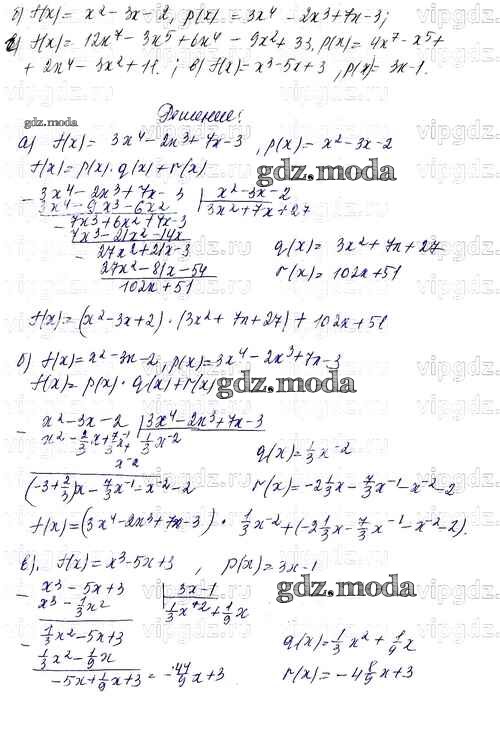 б) f(x) = x² - 3x - 2, p(x) = 3x⁴ - 2x³ + 7x - 3;
г) f(x) = 12x⁷ - 3x⁵ + 6x⁴ - 9x² + 33, p(x) = 4x⁷ - x⁵ +
+ 2x⁴ - 3x² + 11. ; в) f(x) = x³ - 5x + 3, p(x) = 3x - 1.
Решение:
gdz.moda
а) f(x) = 3x⁴ - 2x³ + 7x - 3, p(x) = x² - 3x - 2
f(x) = p(x) · q(x) + r(x)
gdz.moda
- 3x⁴ - 2x³ + 7x - 3 | x² - 3x - 2
3x⁴ - 9x³ - 6x² 3x² + 7x + 27
- 7x³ + 6x² + 7x - 3
7x³ - 21x² - 14x q(x) = 3x² + 7x + 27
- 27x² + 21x - 3
27x² - 81x - 54 r(x) = 102x + 51
102x + 51
f(x) = (x² - 3x + 2) · (3x² + 7x + 27) + 102x + 51
б) f(x) = x² - 3x - 2, p(x) = 3x⁴ - 2x³ + 7x - 3
f(x) = p(x) · q(x) + r(x)
gdz.moda
- x² - 3x - 2 | 3x⁴ - 2x³ + 7x - 3
x² - 2/3 x + 7/3 x⁻¹ 1/3 x⁻²
x⁻² q(x) = 1/3 x⁻²
(-3 + 2/3)x - 7/3 x⁻¹ - x⁻² - 2 r(x) = -2 1/3 x - 7/3 x⁻¹ - x⁻² - 2
f(x) = (3x⁴ - 2x³ + 7x - 3) · 1/3 x⁻² + (-2 1/3 x - 7/3 x⁻¹ - x⁻² - 2).
в). f(x) = x³ - 5x + 3, p(x) = 3x - 1
gdz.moda
- x³ - 5x + 3 | 3x - 1
x³ - 1/3 x² 1/3 x² + 1/9 x
- 1/3 x² - 5x + 3
1/3 x² - 1/9 x q(x) = 1/3 x² + 1/9 x
-5x + 1/9 x + 3 = -44/9 x + 3 r(x) = -4 8/9 x + 3